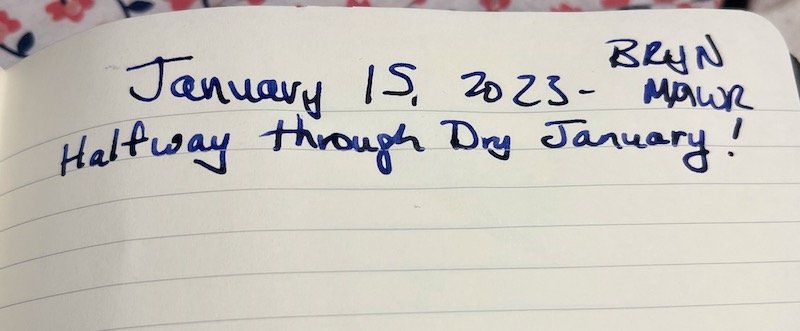 January 15, 2023- BRYN
MAWR
Halfway through Dry January!